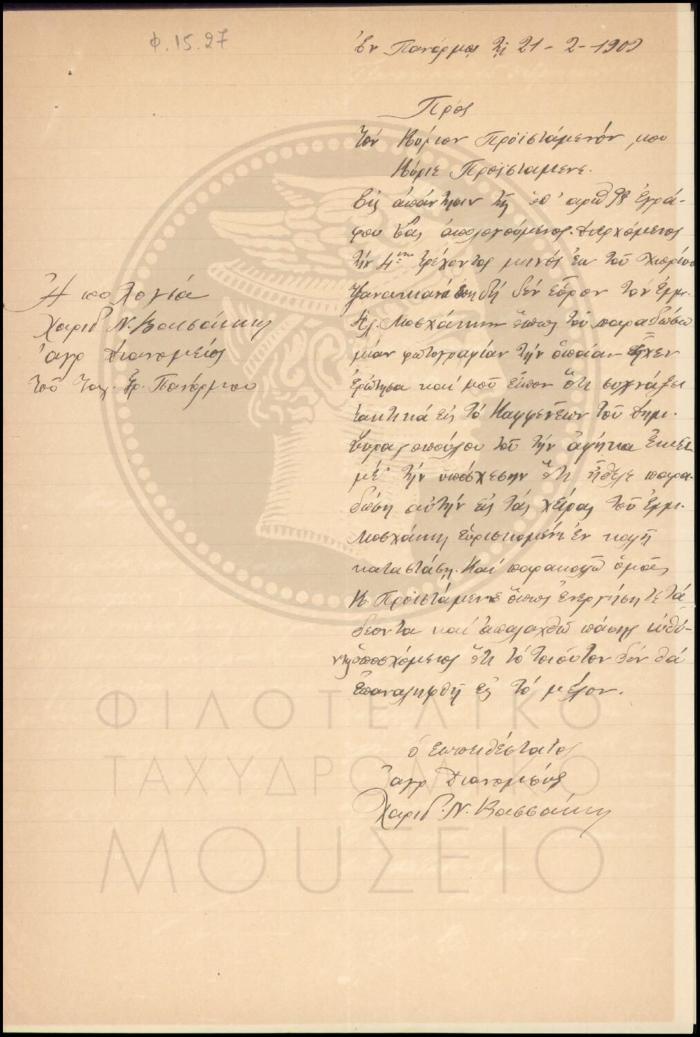 Φ. 15.27
Ἐν Πανόρμῳ τῇ 21-2-1909
Πρὸς
τὸν Κύριον Προϊστάμενόν μου
Κύριε Προϊστάμενε.
Εἰς ἀπάντησιν τῆς ὑπ' ἀριθ 98 ἐγγρά-
φου σας ἀπολογούμενος. Διερχόμενος
τὴν 4ην τρέχοντος μηνὸς ἐκ τοῦ χωρίου
δὲν εὗρον τὸν Ἐμμ.
Μοσχάκην ὅπως τοῦ παραδώσω
μίαν φωτογραφίαν τὴν ὁποίαν εἶχεν
ἐρώτησα καὶ μοῦ εἶπον ὅτι συχνάζει
τακτικὰ εἰς τὸ Καφφενεῖον τοῦ Δημ.
τοῦ τὴν ἀφῆκα ἐκεῖ
μὲ τὴν ὑπόσχεσην ὅτι ἤθελε παρα-
δώση αὐτὴν εἰς τὰς χεῖρας τοῦ Ἐμμ.
Μοσχάκη εὑρισκομένη ἐν καλῇ
καταστάση. Καὶ παρακαλῶ ὑμᾶς
Κ Προϊστάμενε ὅπως ἐνεργήσητε τὰ
δέοντα καὶ ἀπαλαχθῶ πάσης εὐθύ-
νης ὑποσχόμενος ὅτι τὸ τοιοῦτον δὲν θὰ
ἐπαναληφθῇ εἰς τὸ μέλλον.
ὁ εὐπειθέστατος
ἀγρ Διανομεὺς
Χαριδ. Ν. Βασσάκης
Ἀπολογία
Χαριδ Ν. Βασσάκη
ἀγρ Διανομέως
τοῦ Ταχ. Γρ. Πανόρμου
ΦΙΛΟΤΕΛΙΚΟ
ΤΑΧΥΔΡΟΜΙΚΟ
ΜΟΥΣΕΙΟ